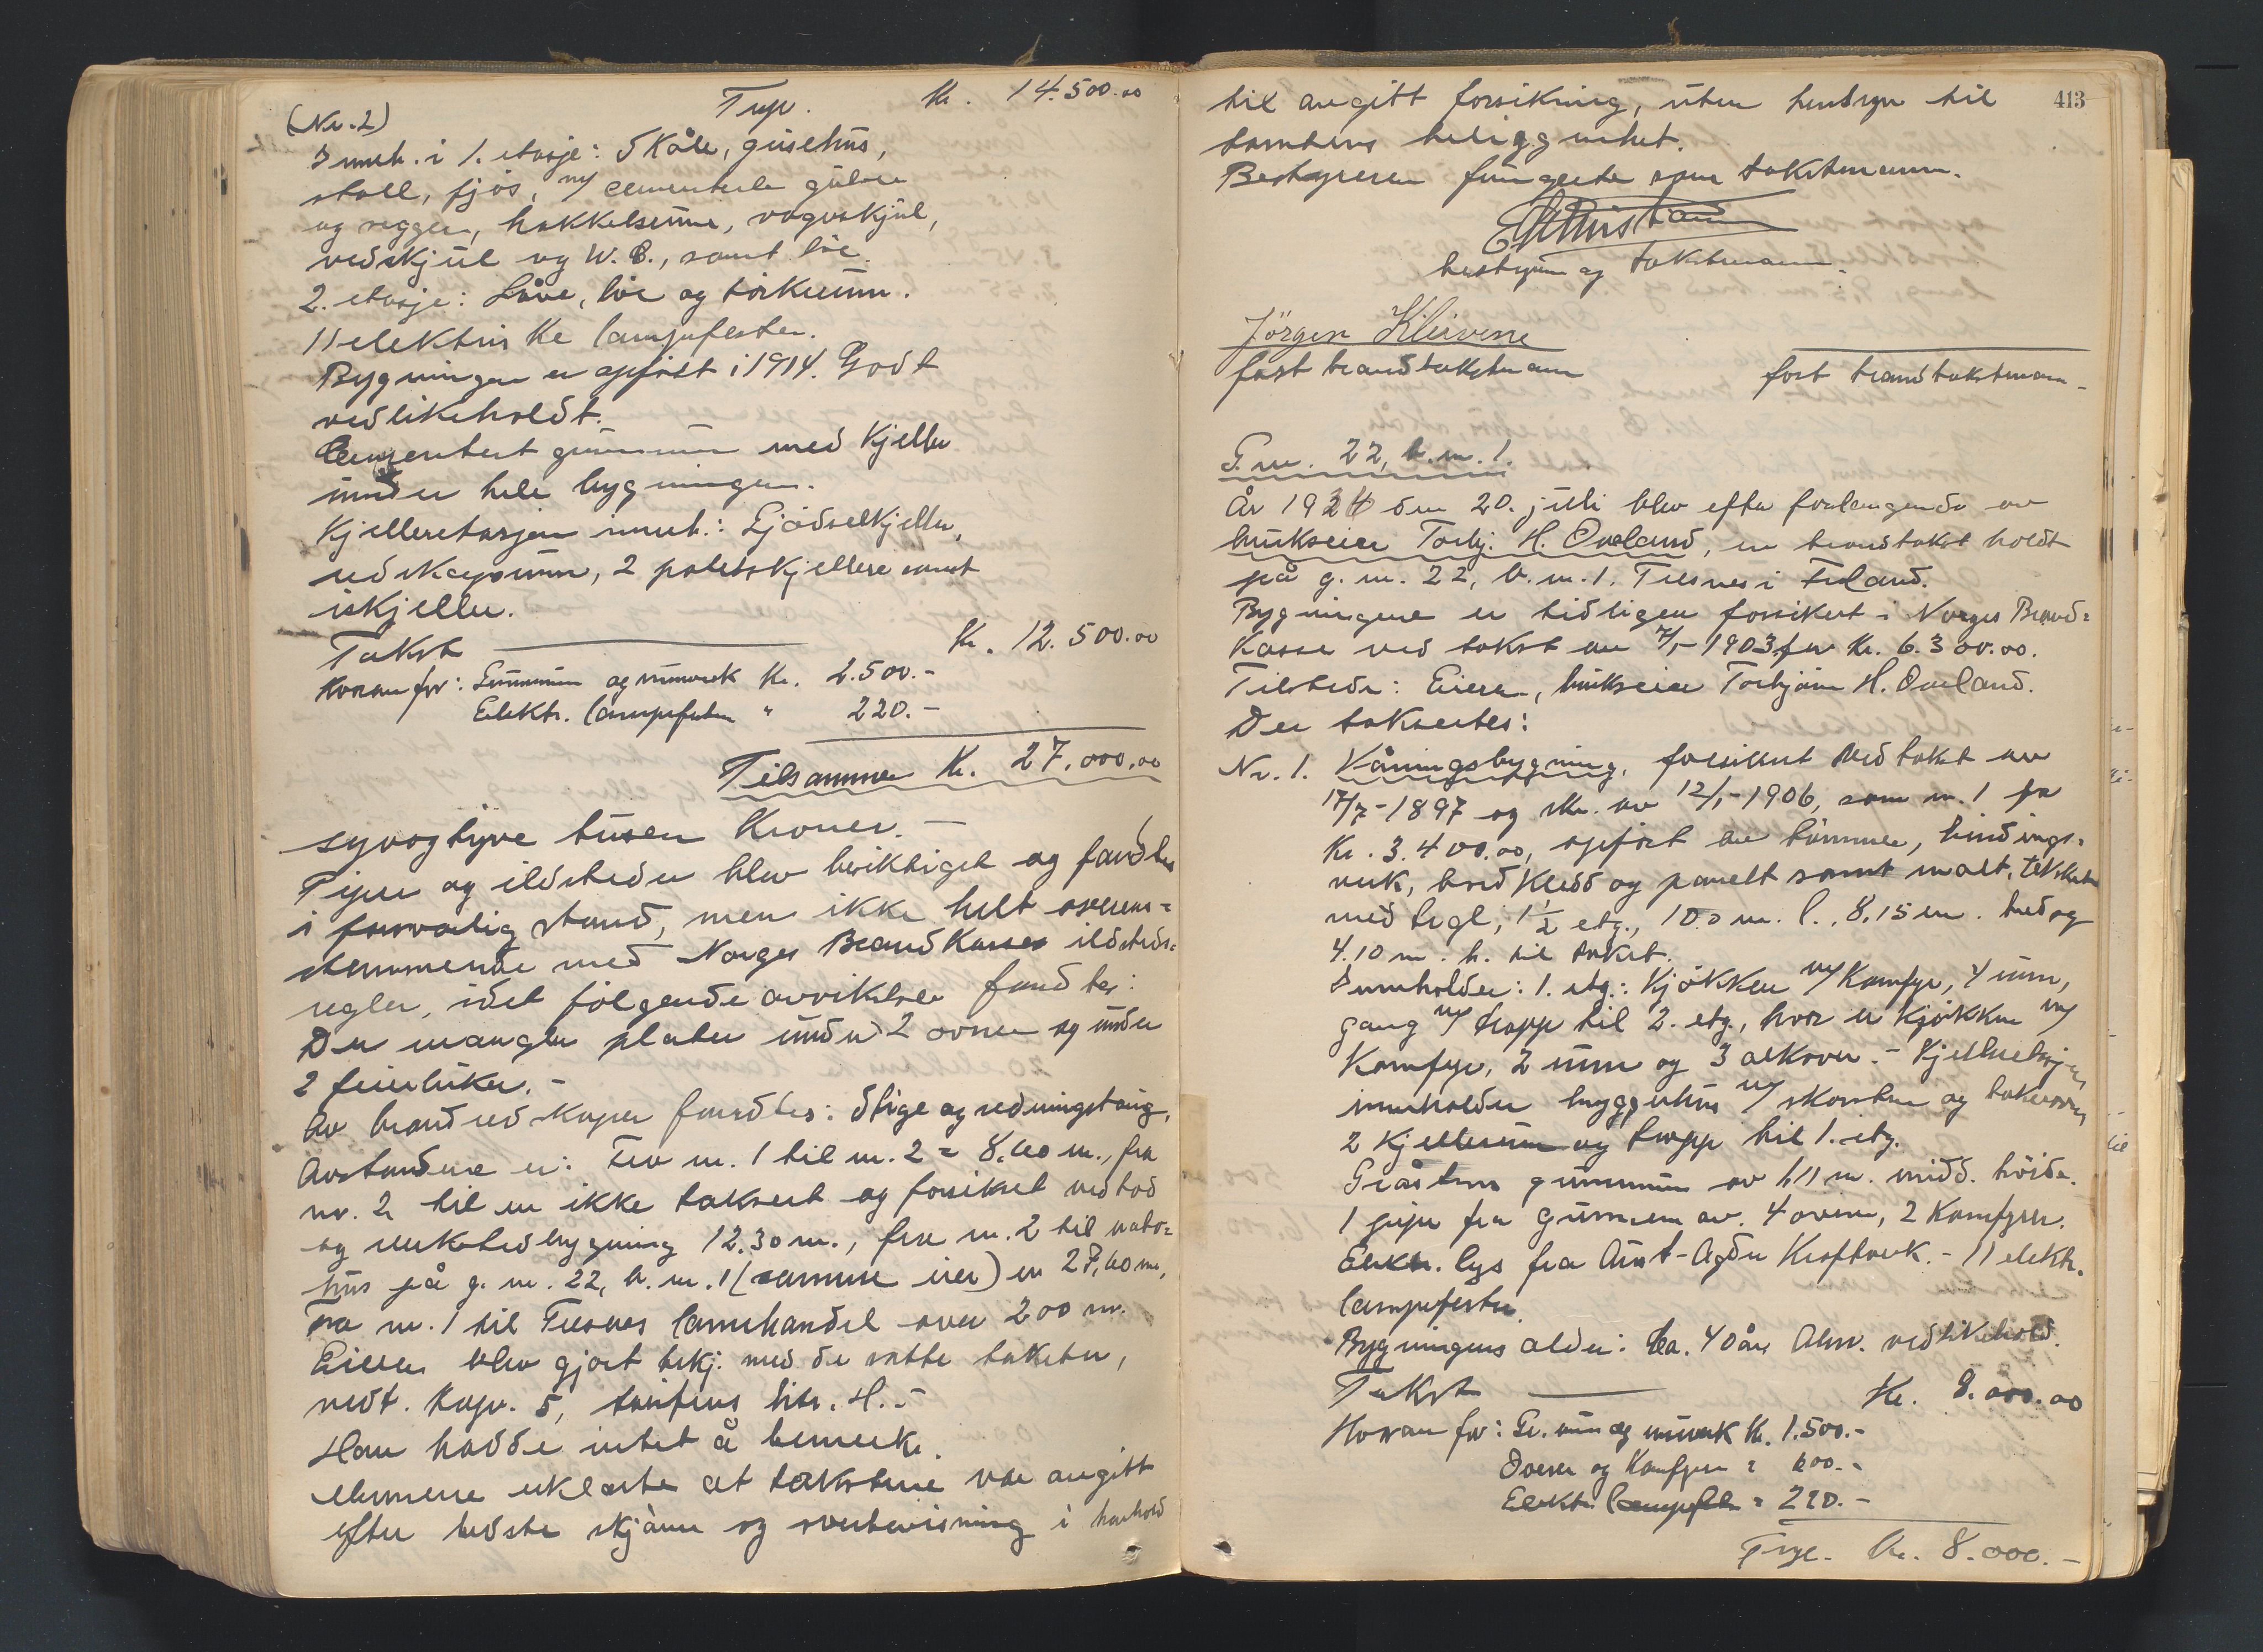 Trsp. Kr. 14.500.00
(Nr. 2)
Inneh. i 1. etasje: Skåle, grisehus,
stall, fjös, m/ cementerte gulver
og vegger, hakkelserum, vognskjul,
vedskjul og W.C., samt löe.
2. etasje: Låve, löe og törkerum.
11 elektriske lampefester.
Bygningen er opfört i 1914. Godt
vedlikeholdt.
Cementert grunnmur med kjeller
under hele bygningen.
Kjelleretasjen inneh.: Gjödselkjeller,
redskapsrum, 2 potetskjellere samt
iskjeller.
Takst Kr. 12.500.00
Hvorav for: Grunnmur og murverk Kr. 2.500.-
Elektr. lampefester " 220.-
Tilsammen Kr. 27.000,00
syvogtyve tusen Kroner.-
Piper og ildsteder blev besiktiget og fandtes
i forsvarlig stand, men ikke helt overens=
stemmende med Norges Brandkasses ildsteds=
regler, idet fölgende avvikelser fandtes:
Der mangler plater under 2 ovner og under
2 feierluker.-
Av brandredskaper fandtes: Stige og redningstaug.
Avstandene er: Fra nr. 1 til nr. 2 = 8,60 m., fra
nr. 2 til en ikke taksert og forsikret vedbod
og verkstedbygning 12.30 m., fra nr. 2 til nabo=
hus på g. nr. 22, b. nr. 1 (samme eier) er 27,60 m,
Fra nr. 1 til Tresnes landhandel over 200 m.
Eieren blev gjort bekj. med de satte takster,
vedt. kap. 5, tariffens litr. H.-
Han hadde intet å bemerke.
Mennene erklærte at takstene var avgitt
efter bedste skjönn og overbevisning i henhold
413
til avgitt forsikring, uten hensyn til
tomtens beliggenhet.
Bestyreren fungerte som takstmann.
bestyrer og takstmann.
Jörgen Kleivene
fast brandtakstmann fast brandtakstmann
G.nr. 22, b.nr. 1.
År 1934 den 20. juli blev efter forlangende av
bruksier Torbj. H. Oveland, en brandtakst holdt
på g. nr. 22, b. nr. 1. Tresnes i Froland.
Bygningene er tidligere forsikret i Norges Brand=
kasse ved takst av 7/1-1903 for kr. 6.300.00.
Tilstede: Eieren, brukseier Torbjörn H. Oveland.
Der taksertes:
Nr. 1. Våningsbygning, forsikret ved takst av
17/7-1897 og skr. av 12/1-1906, som nr. 1 for
Kr. 3.400.00, opfört av tömmer, bindings-
verk, bordkledd og panelt samt malt, tekket
med tegl, 1 1/2 etg., 10.0 m. l., 8.15 m. bred og
4.10 m. h. til taket.
Inneholder: 1. etg.: Kjökken m/ Komfyr, 4 rum,
gang m/ trapp til 2. etg., hvor er Kjökken m/
Komfyr, 2 rum og 3 alkover.- Kjelleretasjen
inneholder bryggerhus m/ skorsten og bakerovn,
2 kjellerrum og trapp til 1. etg.
Gråstens grunnmur av 1,11 m. midd. höide.
1 pipe fra grunnen av. 4 ovner, 2 Komfyrer.
Elektr. lys fra Aust-Agder Kraftverk.- 11 elektr.
lampefester.
Bygningens alder: Ca. 40 år. Alm. vedlikehold.
Takst Kr. 8.000.00
Hvorav for: Gr. mur og murverk Kr. 1.500.-
Ovner og Komfyrer " 600.-
Elektr. lampefest. " 220.-
Trsp. Kr. 8.000.-